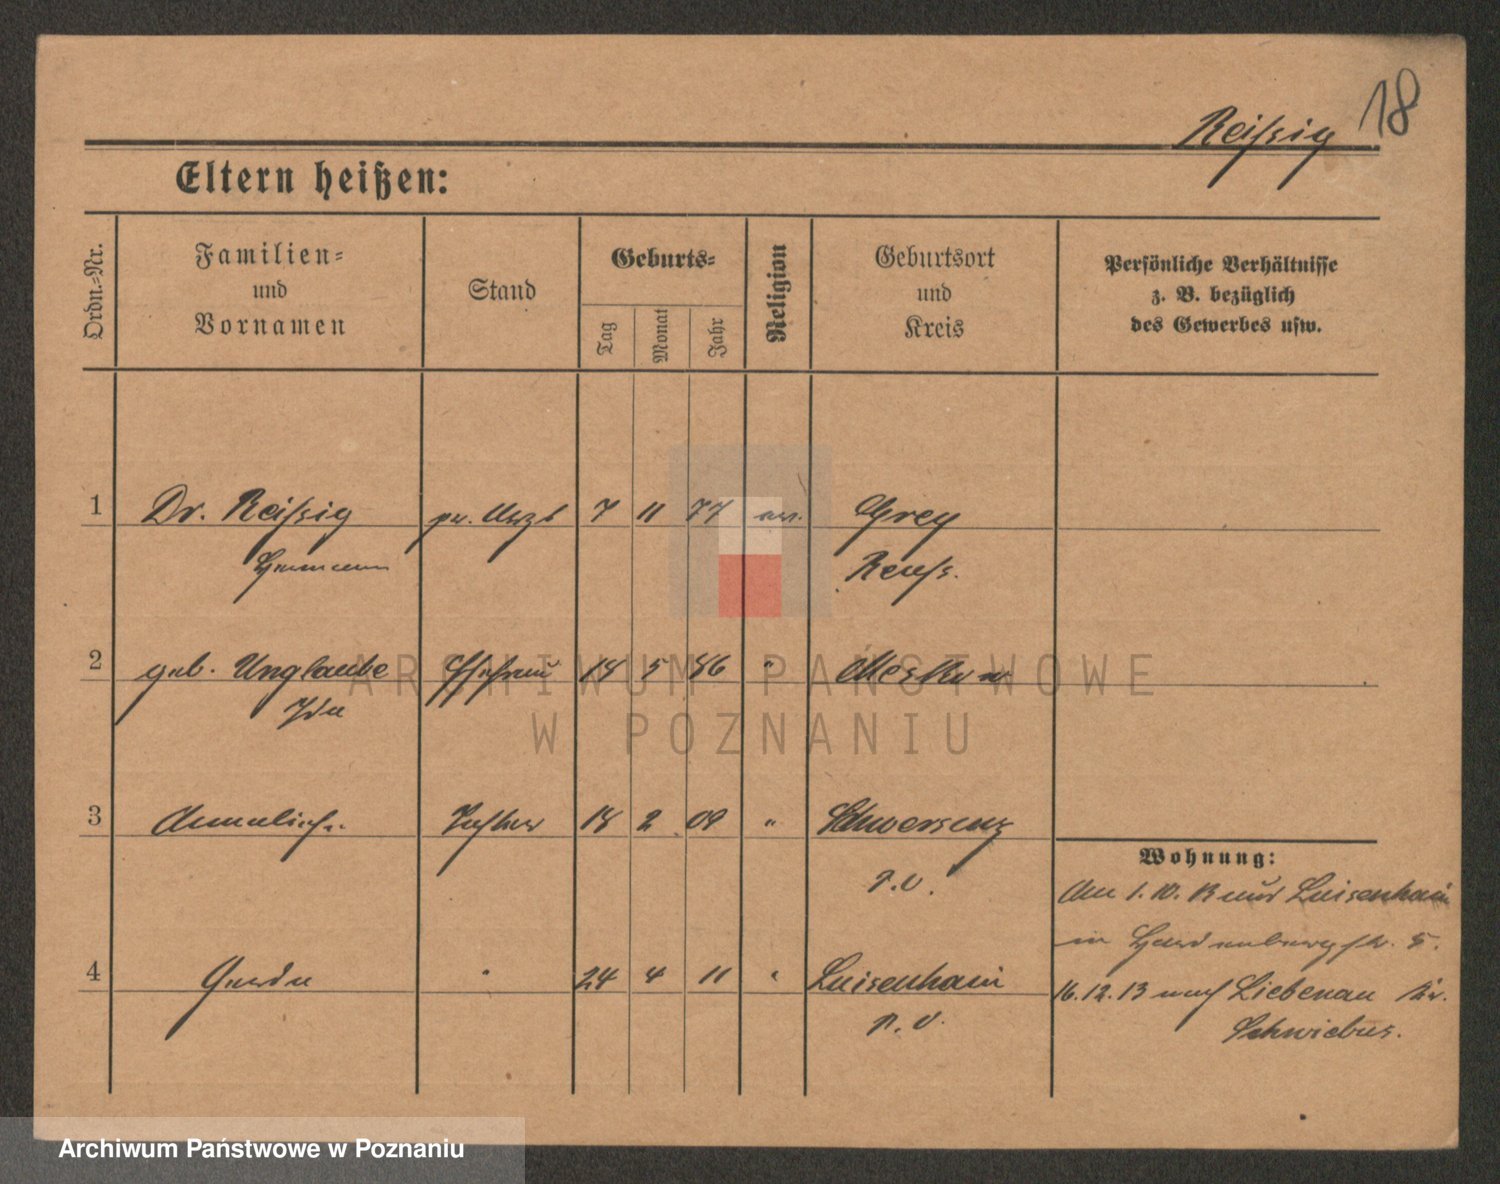 18
Reißig
Eltern heißen:
Ordn.-Nr.
Familien-
und
Vornamen
Stand
Geburts-
Tag
Monat
Jahr
Religion
Geburtsort
und
Kreis
Persönliche Verhältnisse
z. B. bezüglich
des Gewerbes usw.
1 Dr. Reißig pr. Arzt 7 11 77 Grey
Hermann Reuß.
2 geb. Unglaube Ehefrau 18 5 86 "
Ida
3 Annelies. Tochter 18 2 09 " Schwersenz
P.O.
4 Gerda " 24 4 11 " Luisenhain
P.O.
Wohnung:
Am 1.10.13 aus Luisenhain
in Hardenbergstr. 5.
16.12.13 nach Liebenau Kr.
Schwiebus.
ARCHIWUM PAŃSTWOWE
W POZNANIU
Archiwum Państwowe w Poznaniu